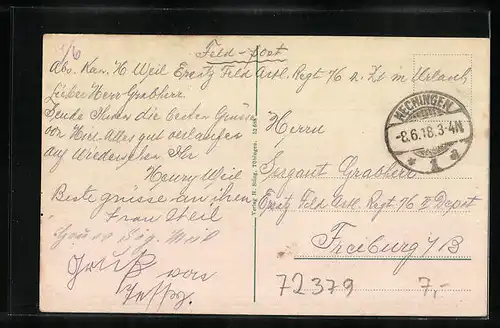 1/6
Feld-post
Abs. Kan. H. Weil Ersatz Feld Artl. Regt 76 z. Zt in Urlaub
Lieber Herr Grabherr.
Sende Ihnen die besten Grüsse
von hier. Alles gut verlaufen
auf Wiedersehen Ihr
Henry Weil
Beste grüsse an ihnen
Frau Weil
Gruss Sig. Weil
Gruß von
HECHINGEN
-8.6.18.3-4N
* 1 a
Herrn
Sergant Grabherr
Ersatz Feld Artl. Regt. 76 II Depot
Freiburg i/B
72379 7,-